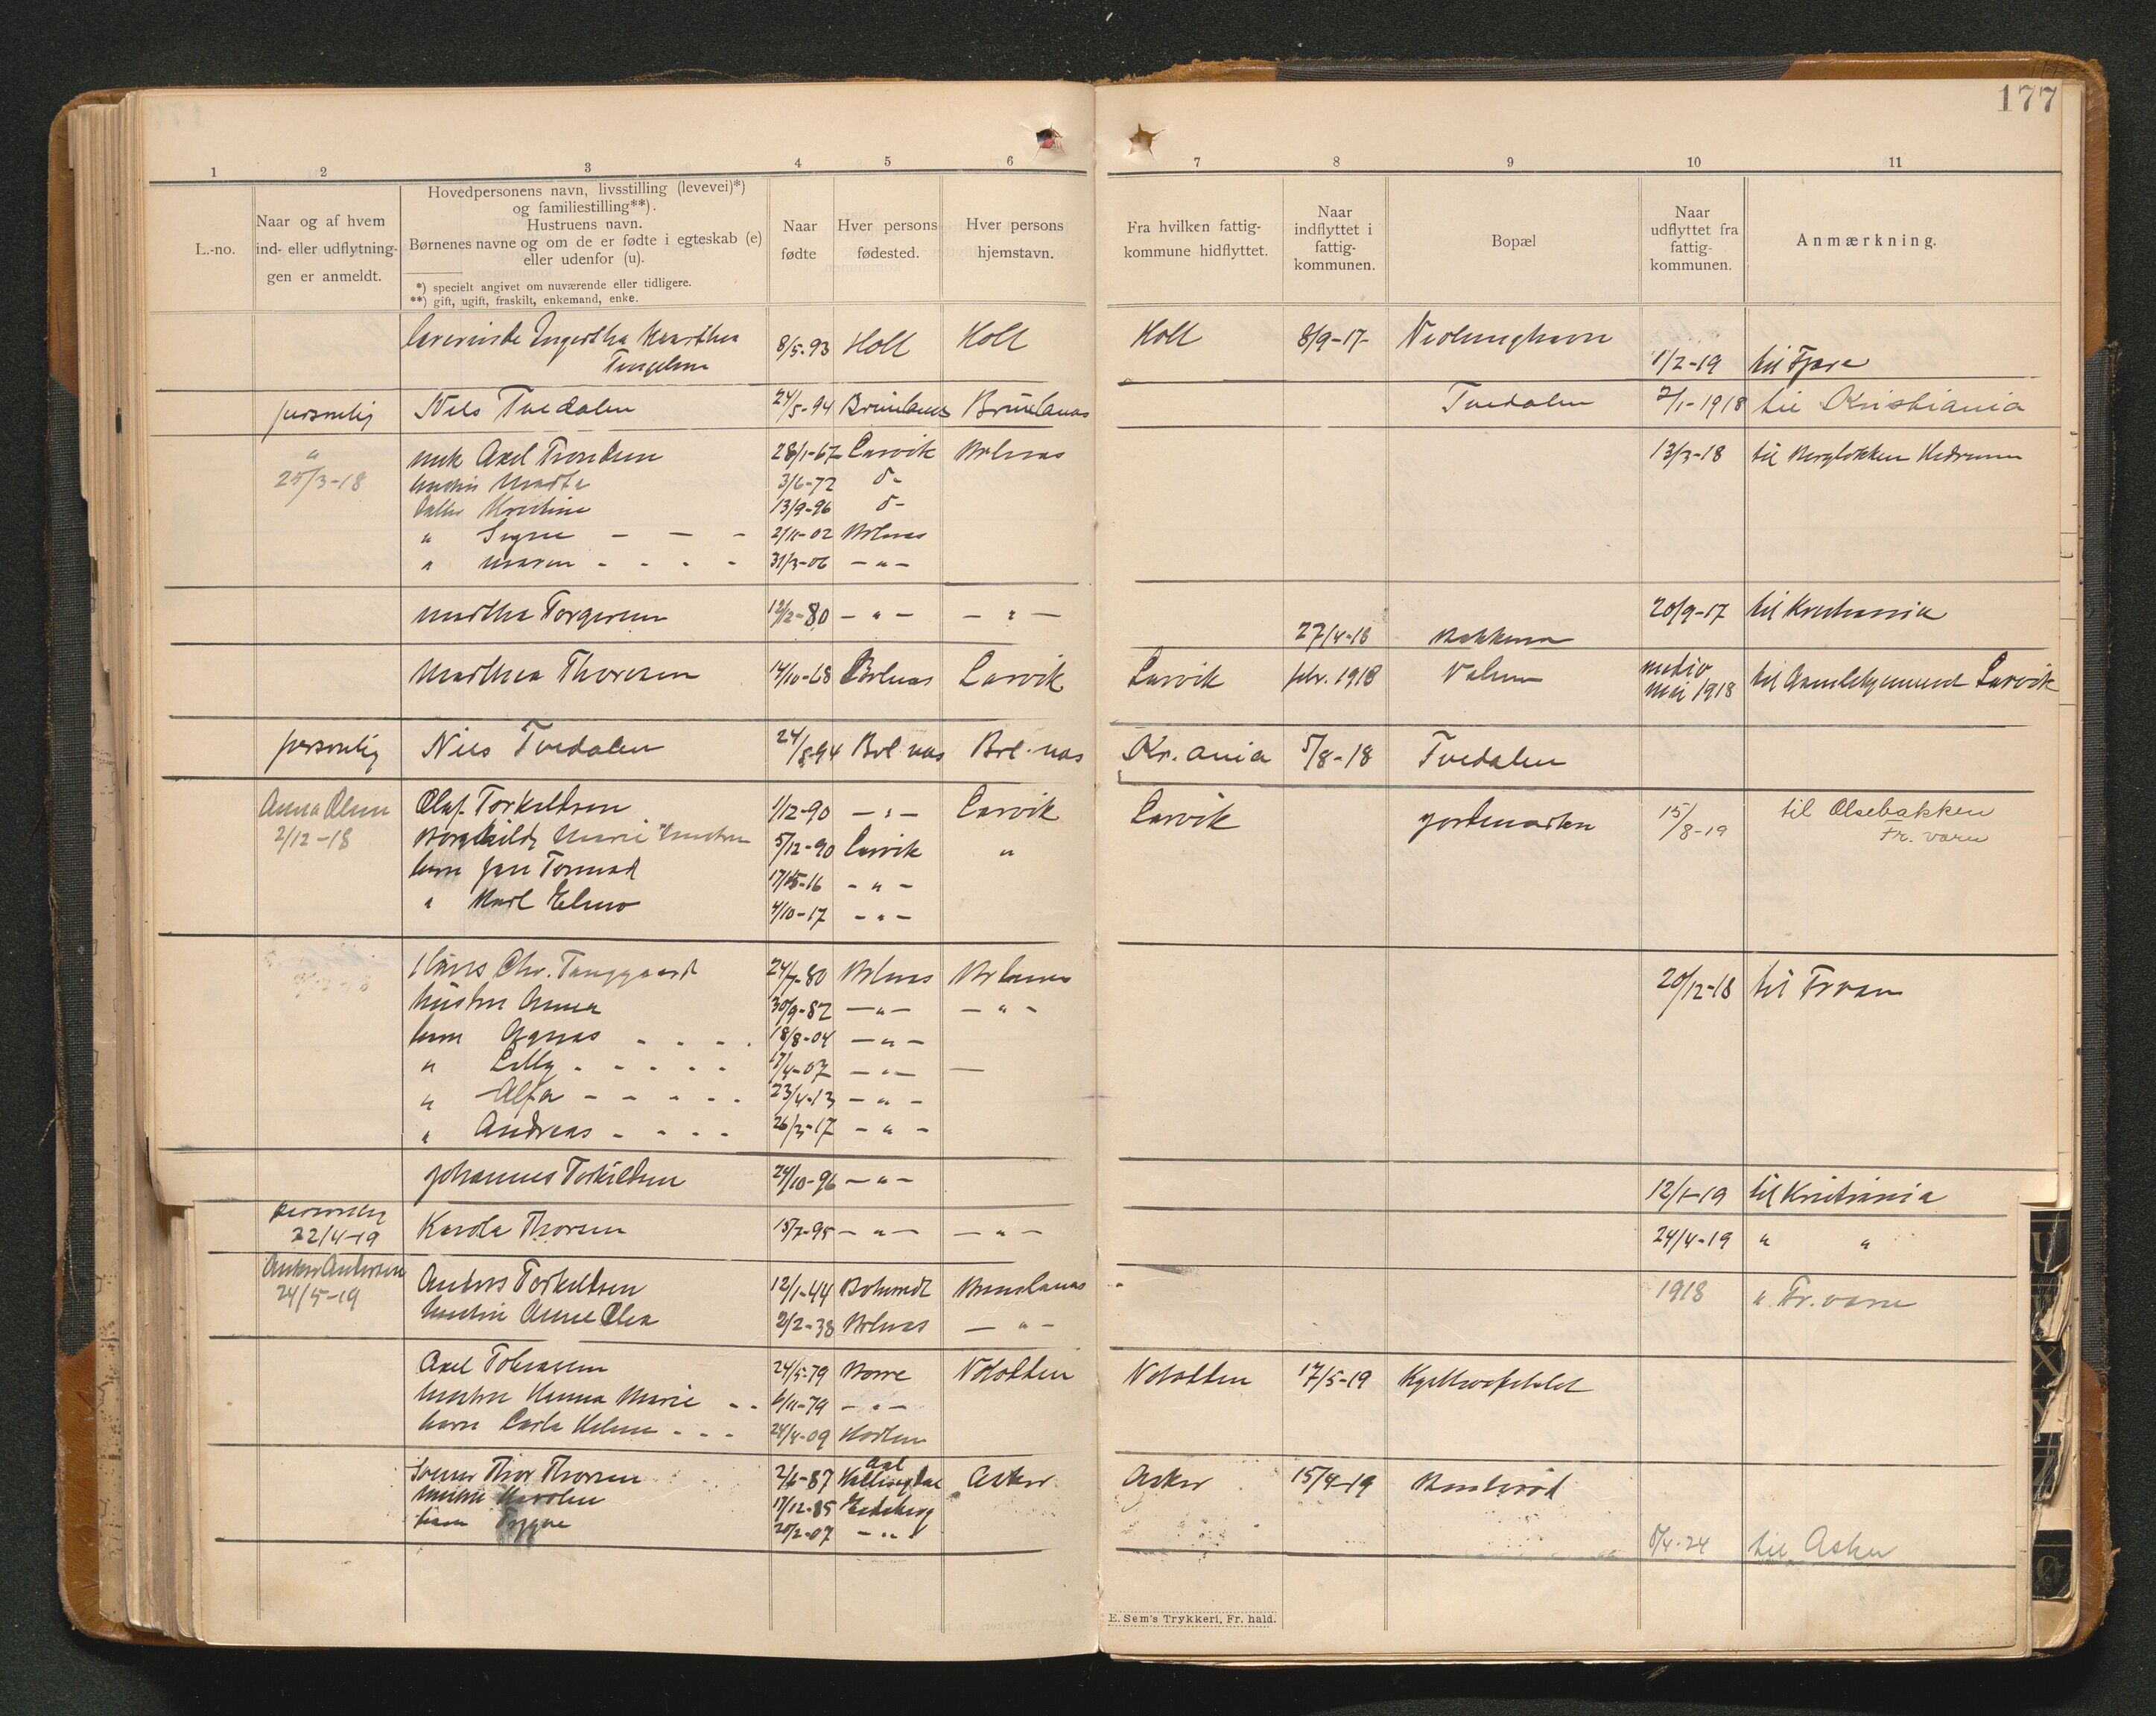 177
1 2 3 4 5 6 7 8 9 10 11
L.-no.
Naar og af hvem
ind- eller udflytnin-
gen er anmeldt.
Hovedpersonens navn, livsstilling (levevei)*)
og familiestilling**).
Hustruens navn.
Børnenes navne og om de er fødte i egteskab (e)
eller udenfor (u).
*) specielt angivet om nuværende eller tidligere.
**) gift, ugift, fraskilt, enkemand, enke.
Naar
fødte
Hver persons
fødested.
Hver persons
hjemstavn.
Fra hvilken fattig-
kommune hidflyttet.
Naar
indflyttet i
fattig-
kommunen.
Bopæl
Naar
udflyttet fra
fattig-
kommunen.
Anmærkning.
8/5-93 Holt Holt Holt 8/9-17- Nevlunghavn
1/2-19 til Fjære
personlig Nils Tvedalen 24/5-94 Brunlanes Brunlanes Tvedalen 2/1-1918 til Kristiania
" Axel Trondsen 28/1-67 Larvik Brlnæs 13/3-18 til Hedrum
25/3-18 hustru Marta 3/6-72 d-
datter Kristine 13/9-96 d-
" Signe - - - 2/11-02 Brlnæs
" Maren - - - - 31/3-06 - " -
Martha Torgersen 12/2-80 - " - - " - 20/9-17 til Kristiania
27/4-18 Bakkene
Marthea Thoresen 14/10-68 Brlnæs Larvik Larvik febr. 1918 medio
mai 1918 til Gamlehjemmet Larvik
personlig Nils Tvedalen 24/8-94 Brl.næs Brl.næs Kr.ania 5/8-18 Tvedalen
Anna Olsen Olaf Torkildsen 1/12-90 - " - Larvik Larvik 15/8-19 til Olsebakken
2/12-18 Borghild Marie hustru 5/12-90 Larvik " Fr. værn
barn Tormod - " -
" Karl Elmo 4/10-17 - " -
Hans Chr. Tanggaard 24/7-80 Brlnæs Brlanes 20/12-18 til Frværn
hustru Anna 30/9-82 - " - - " -
barn Agnes - - - . 18/8-04 - " -
" Lilly - - - - - 17/4-07 - " - -
" Alfa - - - - - 23/4-13 - " -
" Andreas - - - - 26/3-17 - " -
Johannes Torkildsen 24/10-96 - " - 12/1-19 til Kristiania
personlig
22/4-19 Karola Thorsen 15/7-95 - " - - " - 24/4-19 " "
Anders Torkildsen 12/1-44 Brunlanes 1918 " Fr.værn
24/5-19 hustru Anne Olea 2/2-38 Brlnæs - " -
Axel Tobiassen 24/5-79 Borre Notodden Notodden 17/5-19
hustru Hanna Marie - - 6/11-79 - " -
barn Carla Helene - - - 24/4-09 Horten
Thor Thorsen 2/6-87 Aal
Hallingdal Asker Asker 15/4-19
hustru Karoline 17/12-85
barn Trygve 20/2-07 - " -
5/4-24 til Asker
E. Sem's Trykkeri, Fr. hald.